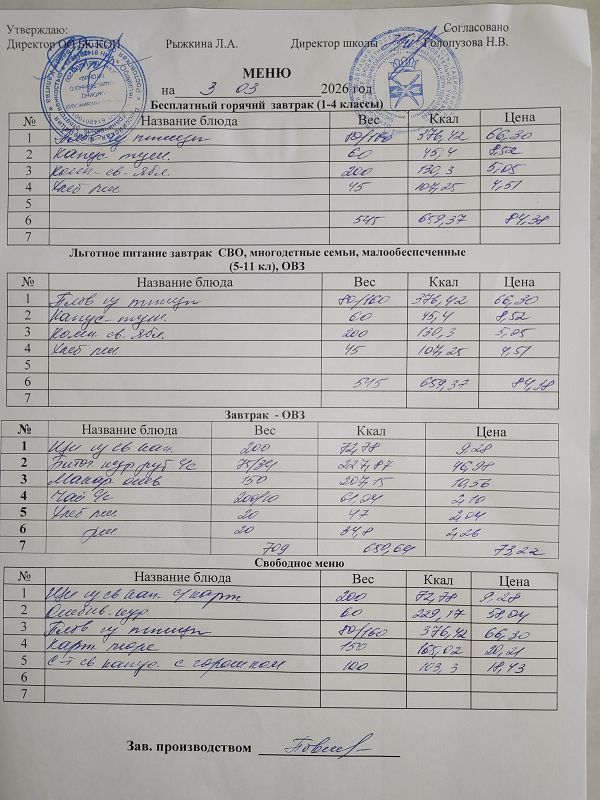 Утверждаю: Согласовано
Директор ОП БК КОП Рыжкина Л.А. Директор школы Голопузова Н.В.
МЕНЮ
на 3 03 2026 год
Бесплатный горячий завтрак (1-4 классы)
№ Название блюда Вес Ккал Цена
1 Плов из птицы 80/160 376,42 66,30
2 Капус. туш. 60 45,4 8,52
3 Комп. св. ябл. 200 130,3 5,05
4 Хлеб пш 45 107,25 4,51
5
6 545 659,37 84,38
7
Льготное питание завтрак СВО, многодетные семьи, малообеспеченные
(5-11 кл), ОВЗ
№ Название блюда Вес Ккал Цена
1 Плов из птицы 80/160 376,42 66,30
2 Капус. туш. 60 45,4 8,52
3 Комп. св. ябл. 200 130,3 5,05
4 Хлеб пш 45 107,25 4,51
5
6 545 659,37 84,38
7
Завтрак - ОВЗ
№ Название блюда Вес Ккал Цена
1 Щи из св кап. 200 72,78 9.28
2 Биточ кур руб 75/34 227,87 46,98
3 Макар отв 150 207,15 10,56
4 Чай 200/10 61,04 2,10
5 Хлеб рж 20 47 2,04
6 пш 20 34,8 2,26
7 709 659,64 73,22
Свободное меню
№ Название блюда Вес Ккал Цена
1 Щи из св кап. с карт 200 72,78 9.28
2 Отбив. кур 60 229,17 58,04
3 Плов из птицы 80/160 376,42 66,30
4 Карт пюре 150 165,02 20,21
5 С-т св капус. с горошком 100 103,3 18,43
6
7
Зав. производством